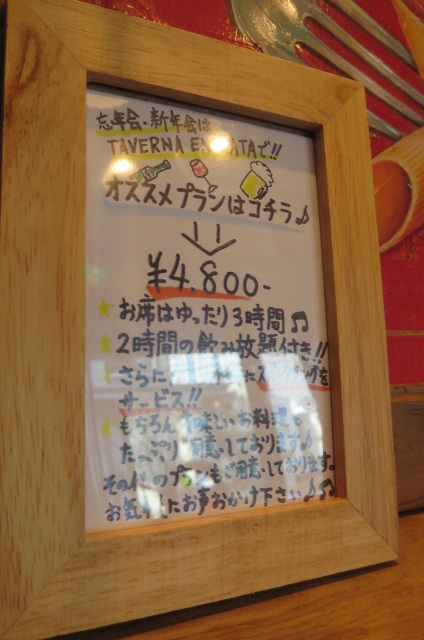 忘年会・新年会は
TAVERNA で!!
オススメプランはコチラ♪
¥4.800-
★お席はゆったり3時間♫
★2時間の飲み放題付き!!
さらに を
サービス!!
★もちろん美味しいお料理も
たっぷりご用意しております♪
その他のプランもご用意しております。
お気軽にお声おかけ下さい♪♫